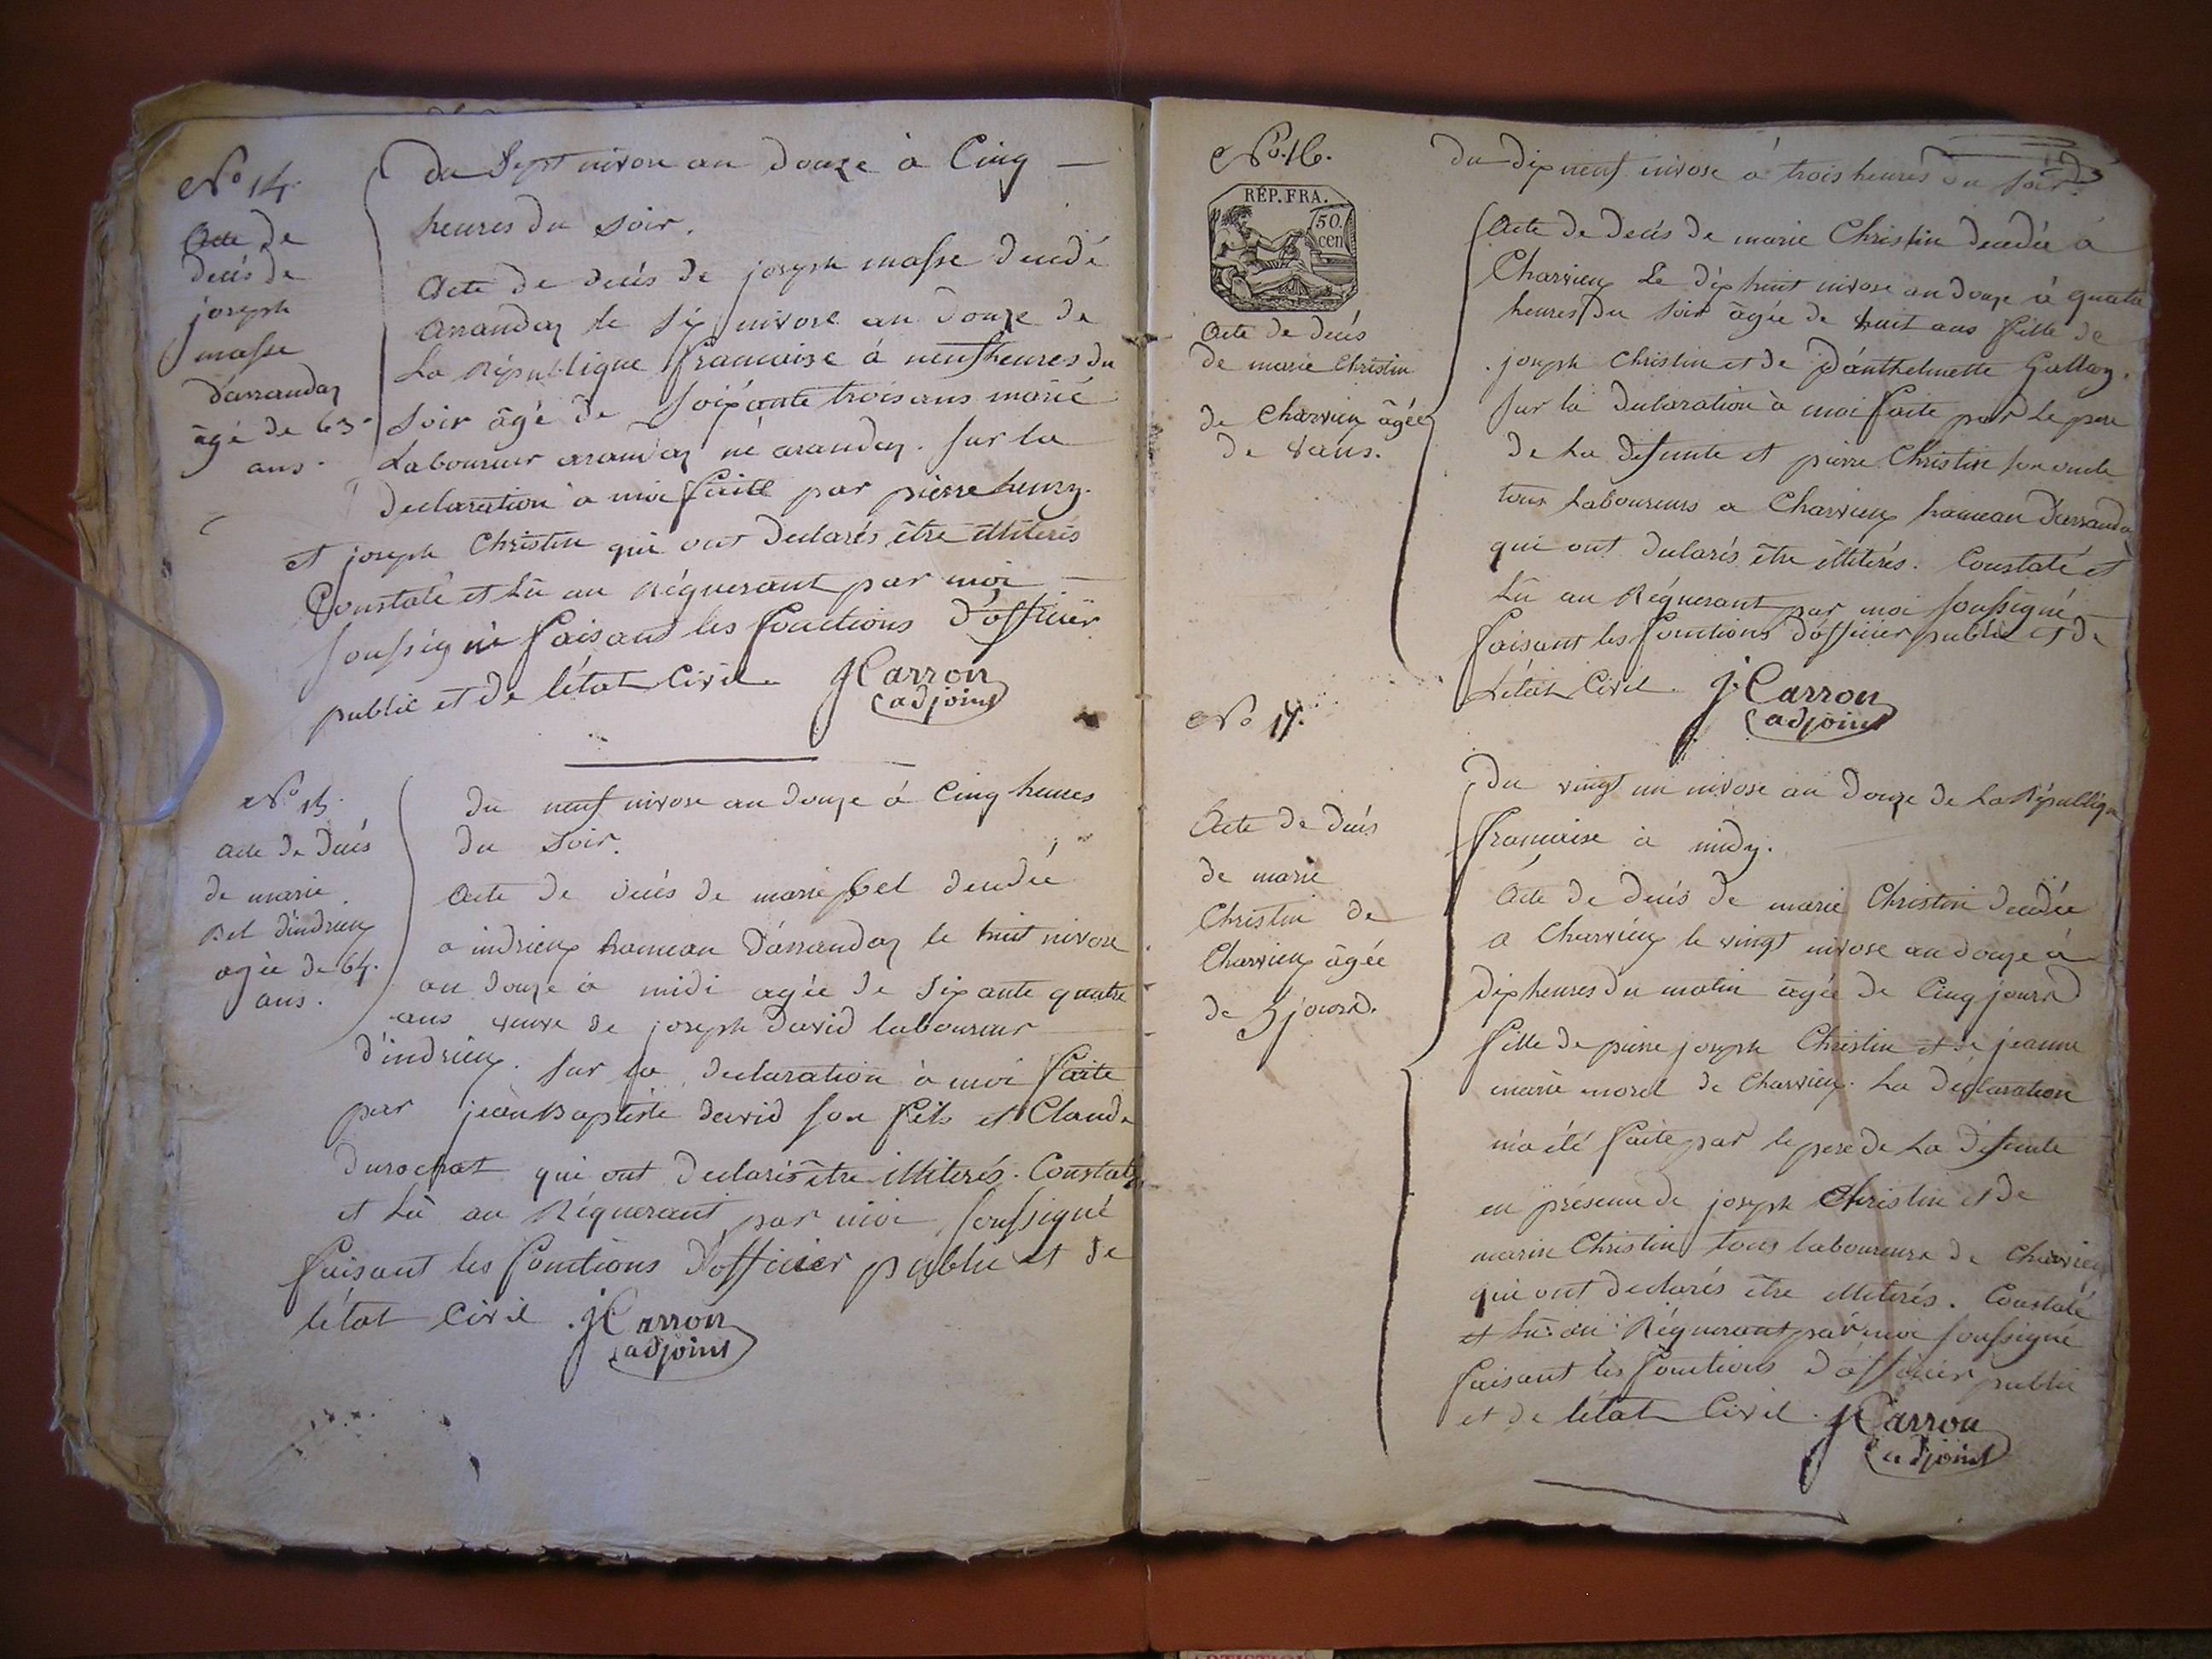 No 14.
Acte de
decés de
joseph
masse
darrandaz
âgé de 63
ans.
du Sept nivose an douze à Cinq
heures du soir.
Acte de decés de joseph masse decedé
arrandaz le six nivose an douze de
La République francaise à neuf heures du
soir âgé de soixante trois ans marié
Laboureur arandaz né arandaz. sur la
declaration a moi faite par pierre henry
et joseph Christin qui ont declarés être illiterés
Constaté et Lû au Réquerant par moi
soussigné faisant les fonctions d'officier
public et de l'état Civil. J Carron
adjoint
No 15.
acte de decés
de marie
Bel d'indrieux
agée de 64.
ans.
du neuf nivose an douze à Cinq heures
du soir.
Acte de decés de marie bel decedée
a indrieux hameau d'arrandaz le huit nivose
an douze à midi agée de sixante quatre
ans veuve de joseph david laboureur
d'indrieux. sur la declaration à moi faite
par jean Baptiste david son fils et Claude
durochat qui ont declarés être illiterés. Constaté
et Lû au Réquerant par moi soussigné
faisant les fonctions d'officier public et de
l'état Civil. J Carron
adjoint
No. 16.
RÉP. FRA.
50.
cen
Acte de decés
de marie Christin
de Charvieux âgée
de 8 ans.
du dix neuf nivose à trois heures du soir
Acte de decés de marie Christin decedée a
Charvieux Le dix huit nivose an douze à quatre
heures du soir âgée de huit ans fille de
joseph Christin et de d'anthelmette Gallay.
sur la declaration à moi faite par le pere
de La defunte et pierre Christin son oncle
tous Laboureurs a Charvieux hameau d'arranda
qui ont declarés être illiterés. Constaté et
Lû au Réquerant par moi soussigné
faisant les fonctions d'officier public et de
L'état Civil. J. Carron
adjoint
No 17.
Acte de decés
de marie
Christin de
Charvieux âgée
de 5 jours.
Du vingt un nivose an douze de La Républiq
francaise à midy.
Acte de decés de marie Christin decedée
a Charvieux le vingt nivose an douze à
dix heures du matin âgée de Cinq jours
fille de pierre joseph Christin et de jeanne
marie morel de Charvieux. La déclaration
m'a été faite par le pere de La défunte
en présence de joseph Christin et de
marin Christin tous laboureurs de Charvieux
qui ont declarés être illiterés. Constaté
et Lû au Réquerant par moi soussigné
faisant les fonctions d'officier public
et de l'état Civil. J Carron
adjoint